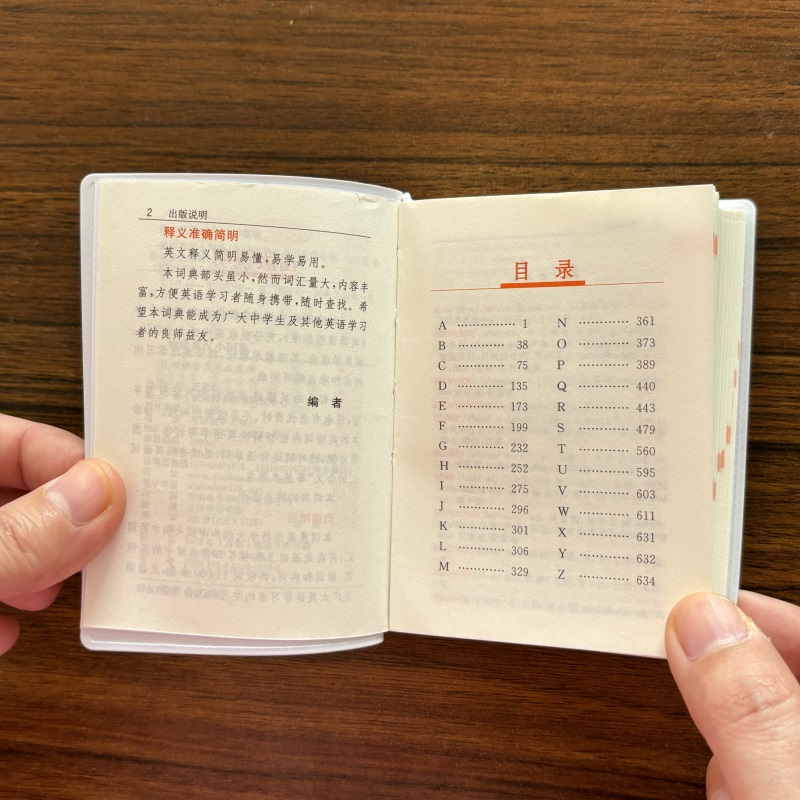 2 出版说明
释义准确简明
英文释义简明易懂，易学易用。
本词典部头虽小，然而词汇量大，内容丰
富，方便英语学习者随身携带，随时查找。希
望本词典能成为广大中学生及其他英语学习
者的良师益友。
编 者
目 录
A ............... 1
B ............ 38
C ............ 75
D ............ 135
E ............ 173
F ............ 199
G ............ 232
H ............ 252
I ............ 275
J ............ 296
K ............ 301
L ............ 306
M ............ 329
N ............ 361
O ............ 373
P ............ 389
Q ............ 440
R ............ 443
S ............ 479
T ............ 560
U ............ 595
V ............ 603
W ............ 611
X ............ 631
Y ............ 632
Z ............ 634